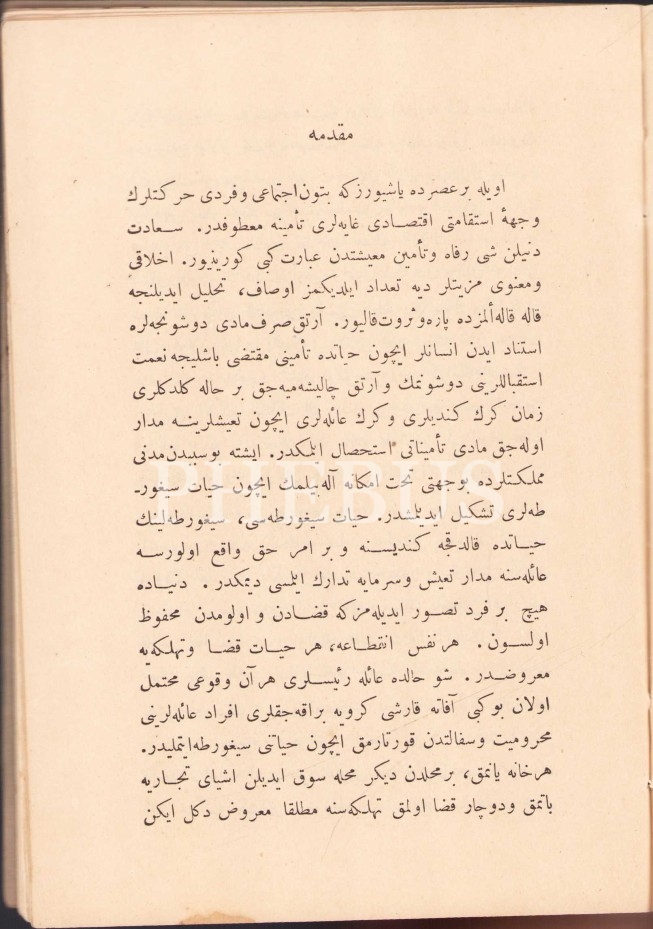 مقدمه
اویله بر عصرده یاشیورز که بتون اجتماعی و فردی حرکتلرك
وجههٔ استقامتی اقتصادی غایه‌لری تأمینه معطوفدر. سعادت
دنیلن شی رفاه و تأمین معیشتدن عبارت کبی کورینیور. اخلاقی
و معنوی مزیتلر دیه تعداد ایلدیکمز اوصاف، تحلیل ایدیلنجه
قاله قاله ألمزده پاره و ثروت قالیور. آرتق صرف مادی دوشونجه‌لره
استناد ایدن انسانلر ایچون حیاتده تأمینی مقتضی باشلیجه نعمت
استقباللرینی دوشونمك و آرتق چالیشه‌میه‌جق بر حاله کلدکلری
زمان کرك کندیلری و کرك عائله‌لری ایچون تعیشلرینه مدار
اوله‌جق مادی تأمیناتی استحصال ایلمکدر. ایشته بو سببدن مدنی
مملکتلرده بو جهتی تحت امکانه آله بیلمك ایچون حیات سیغور-
طه‌لری تشکیل ایدیلمشدر. حیات سیغورطه‌سی، سیغورطه‌لینك
حیاتده قالدقجه کندیسنه و بر امر حق واقع اولورسه
عائله‌سنه مدار تعیش و سرمایه تدارك ایلمسی دیمکدر. دنیاده
هیچ بر فرد تصور ایدیله‌مز که قضادن و اولومدن محفوظ
اولسون. هر نفس انقطاعه، هر حیات قضا و تهلکه‌یه
معروضدر. شو حالده عائله رئیسلری هر آن وقوعی محتمل
اولان بو کبی آفاته قارشی کرویه براقه‌جقلری افراد عائله‌لرینی
محرومیت و سفالتدن قورتارمق ایچون حیاتنی سیغورطه ایتملیدر.
هر خانه یانمق، بر محلدن دیکر محله سوق ایدیلن اشیای تجاریه
باتمق و دوچار قضا اولمق تهلکه‌سنه مطلقا معروض دکل ایکن
PHEBUS